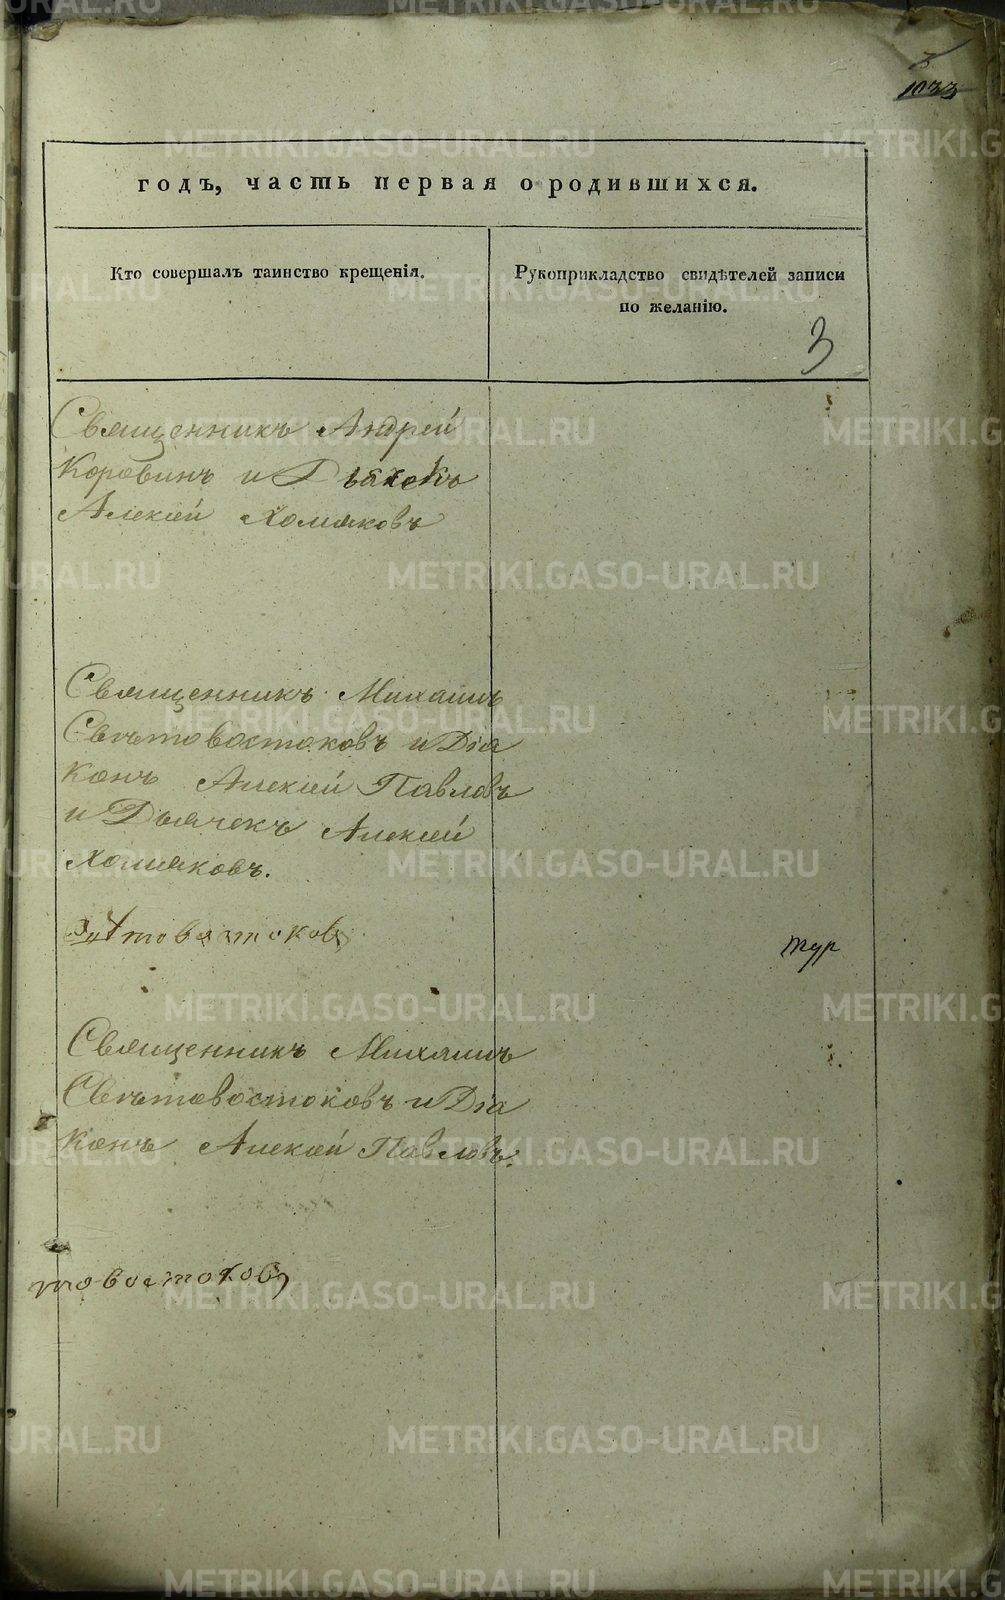 3
1033
годъ, часть первая о родившихся.
Кто совершалъ таинство крещенія.
Рукоприкладство свидѣтелей записи
по желанію.
3
Священникъ Андрей
Коровинъ и Дьячекъ
Алексѣй Хомяковъ
Священникъ Михаилъ
Свѣтовостоковъ и Діа
конъ Алексѣй Павловъ
и Дьячекъ Алексѣй
Хомяковъ.
товостоковъ
тур
Священникъ Михаилъ
Свѣтовостоковъ и Діа
конъ Алексѣй Павловъ.
товостоковъ
METRIKI.GASO-URAL.RU